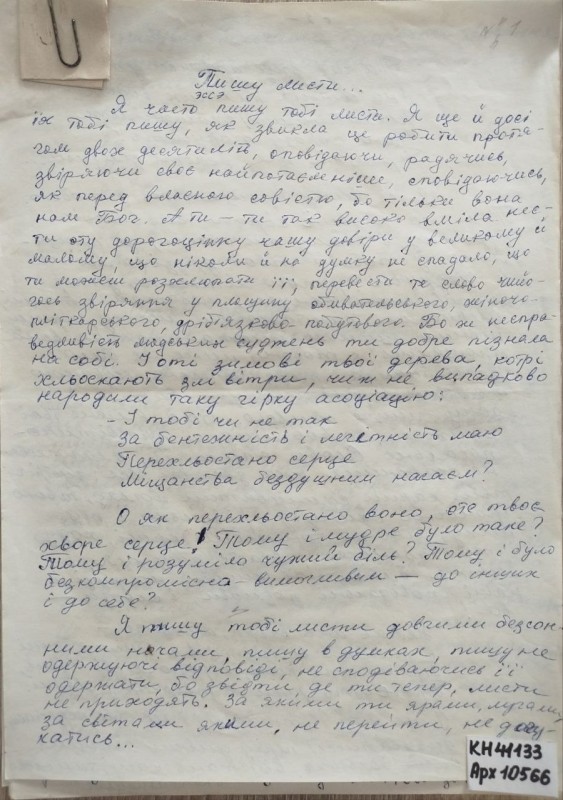 № 1
Пишу листи...
Эссэ
Я часто пишу тобі листи. Я ще й досі
їх тобі пишу, як звикла це робити протя-
гом двох десятиліть, оповідаючи, радячись,
звіряючи своє найпотаємніше, сповідаючись,
як перед власною совістю, бо тільки вона
нам Бог. А ти – ти так високо вміла нес-
ти оту дорогоцінну чашу довіри у великому й
малому, що ніколи й на думку не спадало, що
ти можеш розхлюпати її, перевести те слово чийо-
гось звіряння у площину обивательського, жіночо-
пліткарського, дріб'язково-попутового. Бо ж неспра-
ведливість людських суджень ти добре пізнала
на собі. І оті зимові твої дерева, котрі
хльоскають злі вітри, чи ж не випадково
народили таку гірку асоціацію:
– І тобі чи не так
За бентежність і легітність маю
Перехльостано серце
Міщанства бездушним нагаєм?
О як перехльостано воно, оте твоє
хворе серце! Тому і мудре було таке?
Тому і розуміло чужий біль? Тому і було
безкомпромісна-вимогливим – до інших
і до себе?
Я пишу тобі листи довгими безсон-
ними ночами, пишу в думках, пишу не
одержуючі відповіді, не сподіваючись її
одержати, бо звідти, де ти тепер, листи
не приходять. За якими ти ярами, лугами,
за світами якими, не перейти, не догу-
катись...
КН 44133
Арх 10566